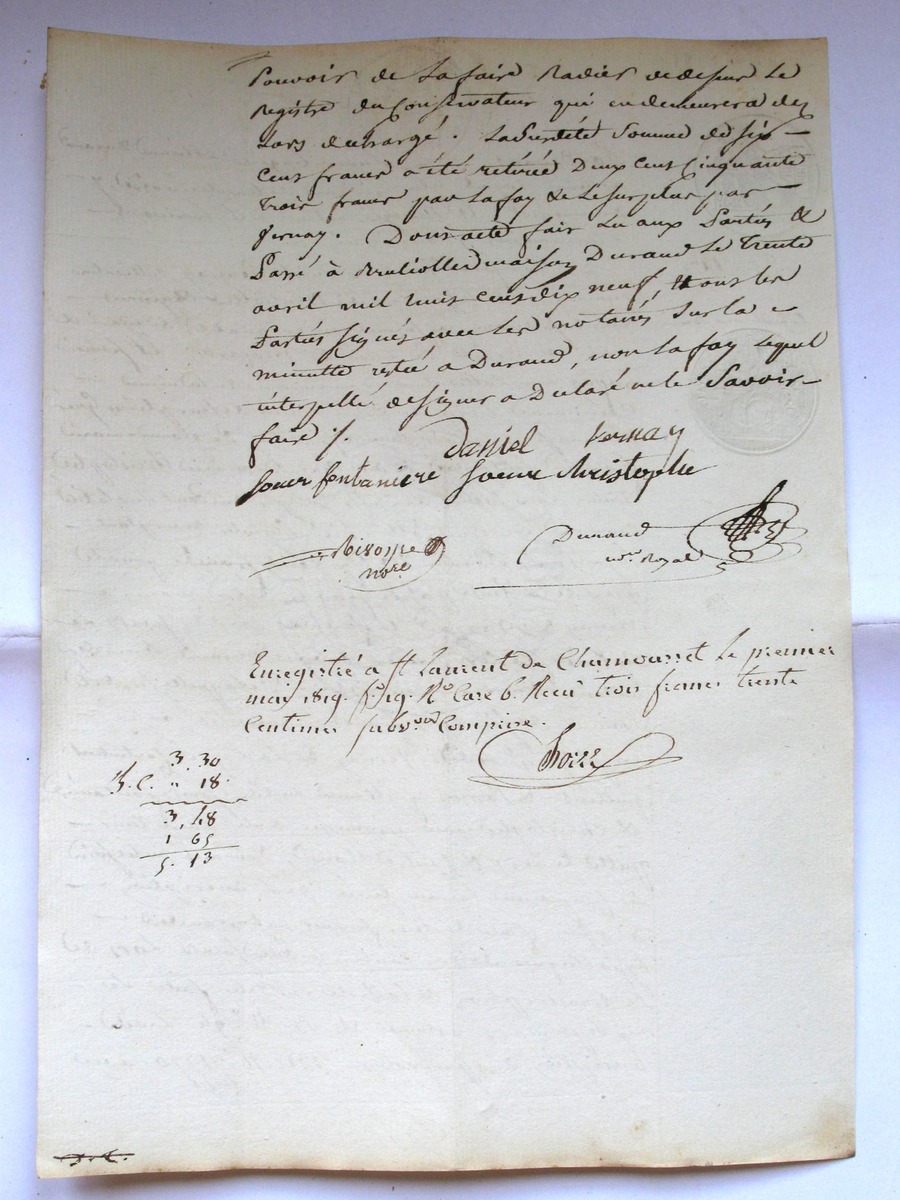 Pouvoir de La faire Radier de dessus Le
Registre du Conservateur qui en demeurera dez
Lors dechargé. La Susditte Somme de six
cent francs a été retirée Deux cent Cinquante
trois francs par Lafay & Le Surplus par
Vernay. Dont acte fait Lu aux Parties &
Passé à maison Durand Le trente
avril mil huit cent dix neuf, tous les
Parties signés avec les notaires sur la
minutte restée a Durand, non Lafay Lequel
interpellé de signer a Declaré ne le Savoir
faire /.
Daniel Vernay
soeur fontaniere soeur christophe
nore
Durand
nre Royal
Enregistré a St Laurent de Chamousset Le premier
mai 1819. fo 19. Ro Case 6. Recu trois francs trente
Centimes subvon Comprise.
3. 30
3. C. " 18.
3, 48
1 65
5. 13